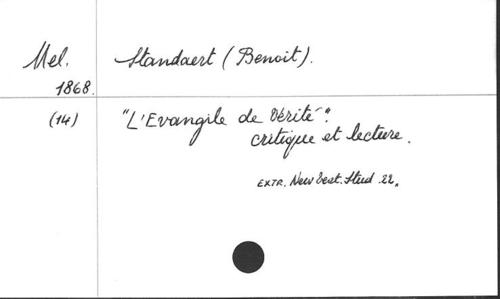 Mel. Standaert (Benoit).
1868.
(14) "L'Evangile de Vérité":
critique et lecture.
EXTR. New Test. Stud. 22.